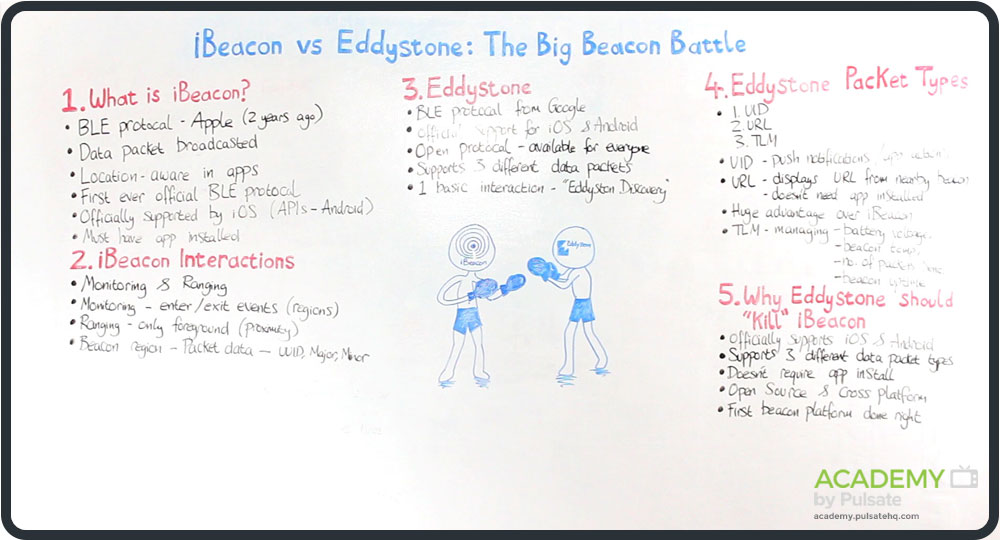 iBeacon vs Eddystone: The Big Beacon Battle
1. What is iBeacon?
• BLE protocal - Apple (2 years ago)
• Data packet broadcasted
• Location - aware in apps
• First ever official BLE protocal
• Officially supported by iOS (APIs - Android)
• Must have app installed
2. iBeacon Interactions
• Monitoring & Ranging
• Monitoring - enter/exit events (regions)
• Ranging - only foreground (Proximity)
• Beacon region - Packet data - UUID, Major, Minor
3. Eddystone
• BLE protocal from Google
• Official support for iOS & Android
• Open protocol - available for everyone
• Supports 3 different data packets
• 1 basic interaction - "Eddyston Discovery"
iBeacon
Eddystone
4. Eddystone Packet Types
• 1. UID
2. URL
3. TLM
• UID - push notifications
• URL - displays URL from nearby beacon
- doesn't need app installed
• Huge advantage over iBeacon
• TLM - managing - battery voltage
- beacon temp.
- no. of packets
- beacon
5. Why Eddystone should
"Kill" iBeacon
• Officially supports iOS & Android
• Supports 3 different data packet types
• Doesn't require app install
• Open Source & Cross platform
• First beacon platform done right
ACADEMY
by Pulsate
academy.pulsatehq.com